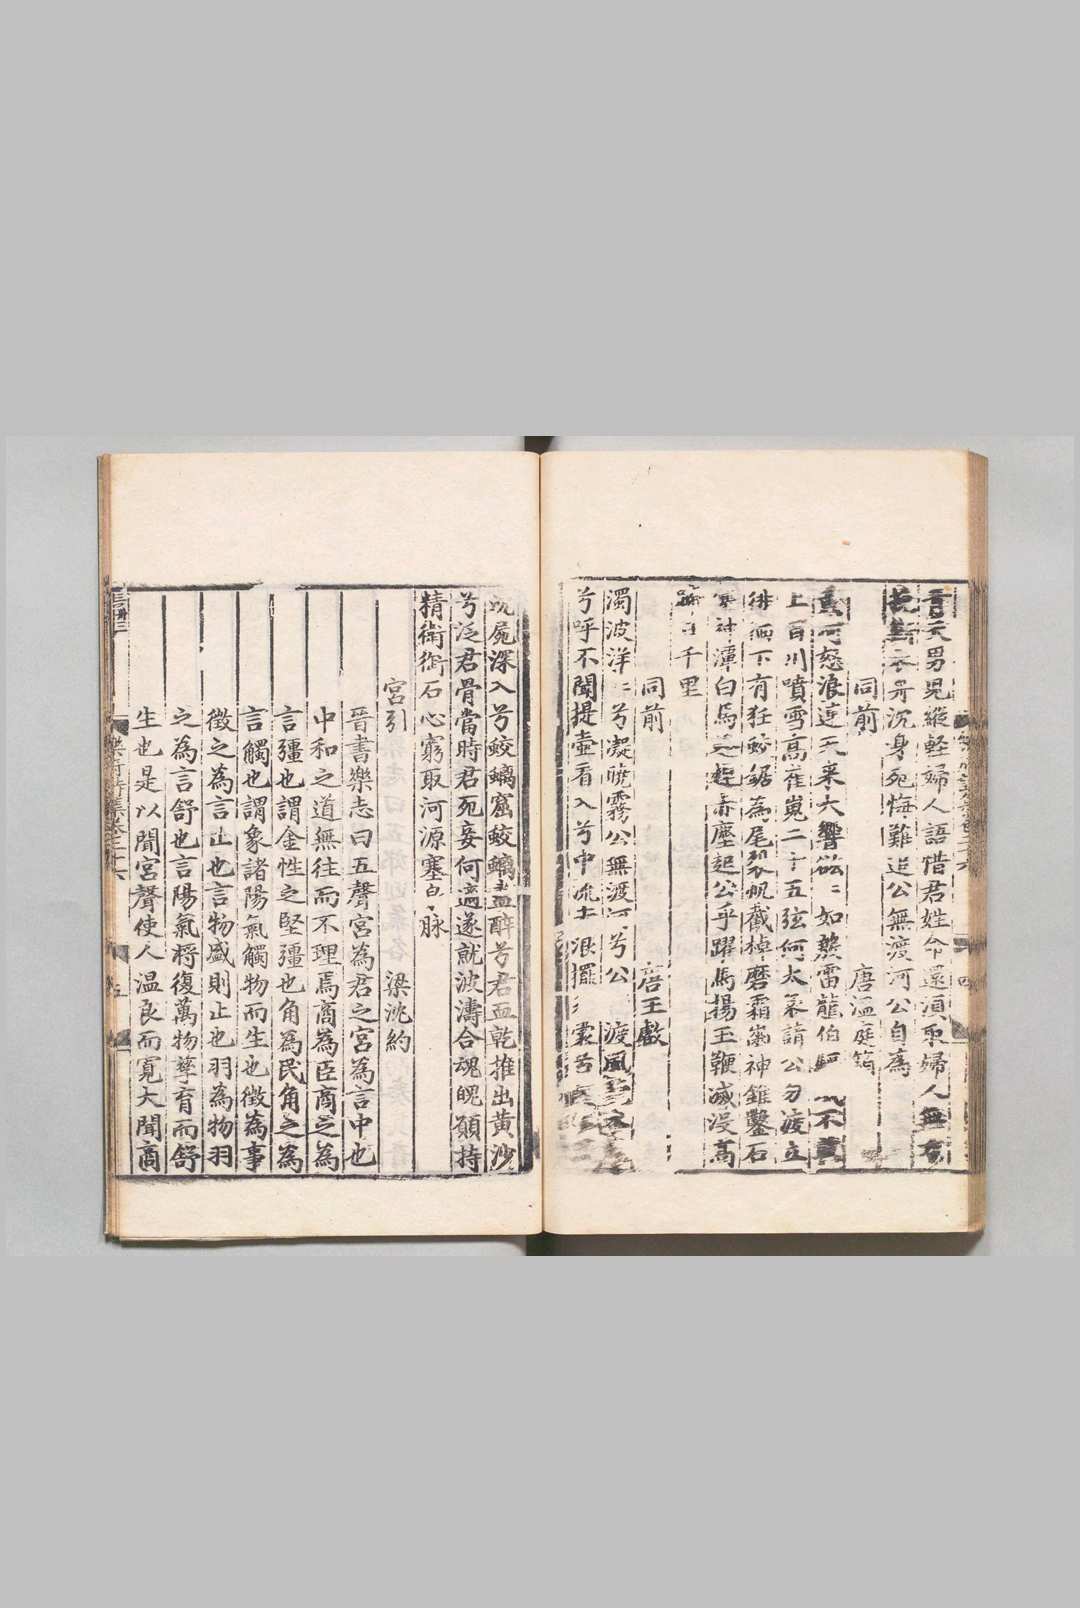 青天男兒縱輕婦人語惜君姓命還須取婦人無力
挽斷衣舟沉身死悔難追公無渡河公自為
同前 唐溫庭筠
黃河怒浪連天來大響谹谹如殷雷龍伯驅 不 
上百川噴雪高崔嵬二十五弦何太哀請公勿渡立
徘徊下有狂蛟鋸為尾裂帆截棹磨霜齒神錐鑿石
神潭白馬 赤塵起公乎躍馬揚玉鞭滅沒高
日千里
同前 唐王叡
濁波洋洋兮凝曉霧公無渡河兮公 渡風
兮呼不聞提壺看入兮中流 浪擺 裳
沉屍深入兮蛟螭窟蛟螭盡醉兮君血乾推出黃沙
兮泛君骨當時君死妾何適遂就波濤合魂魄願持
精衛銜石心窮取河源塞泉脉
宮引 梁沈約
晉書樂志曰五聲宮為君之宮為言中也
中和之道無往而不理焉商為臣商之為
言彊也謂金性之堅彊也角為民角之為
言觸也謂象諸陽氣觸物而生也徵為事
徵之為言止也言物盛則止也羽為物羽
之為言舒也言陽氣將復萬物孳育而舒
生也是以聞宮聲使人溫良而寬大聞商
樂府詩集卷二十六 五